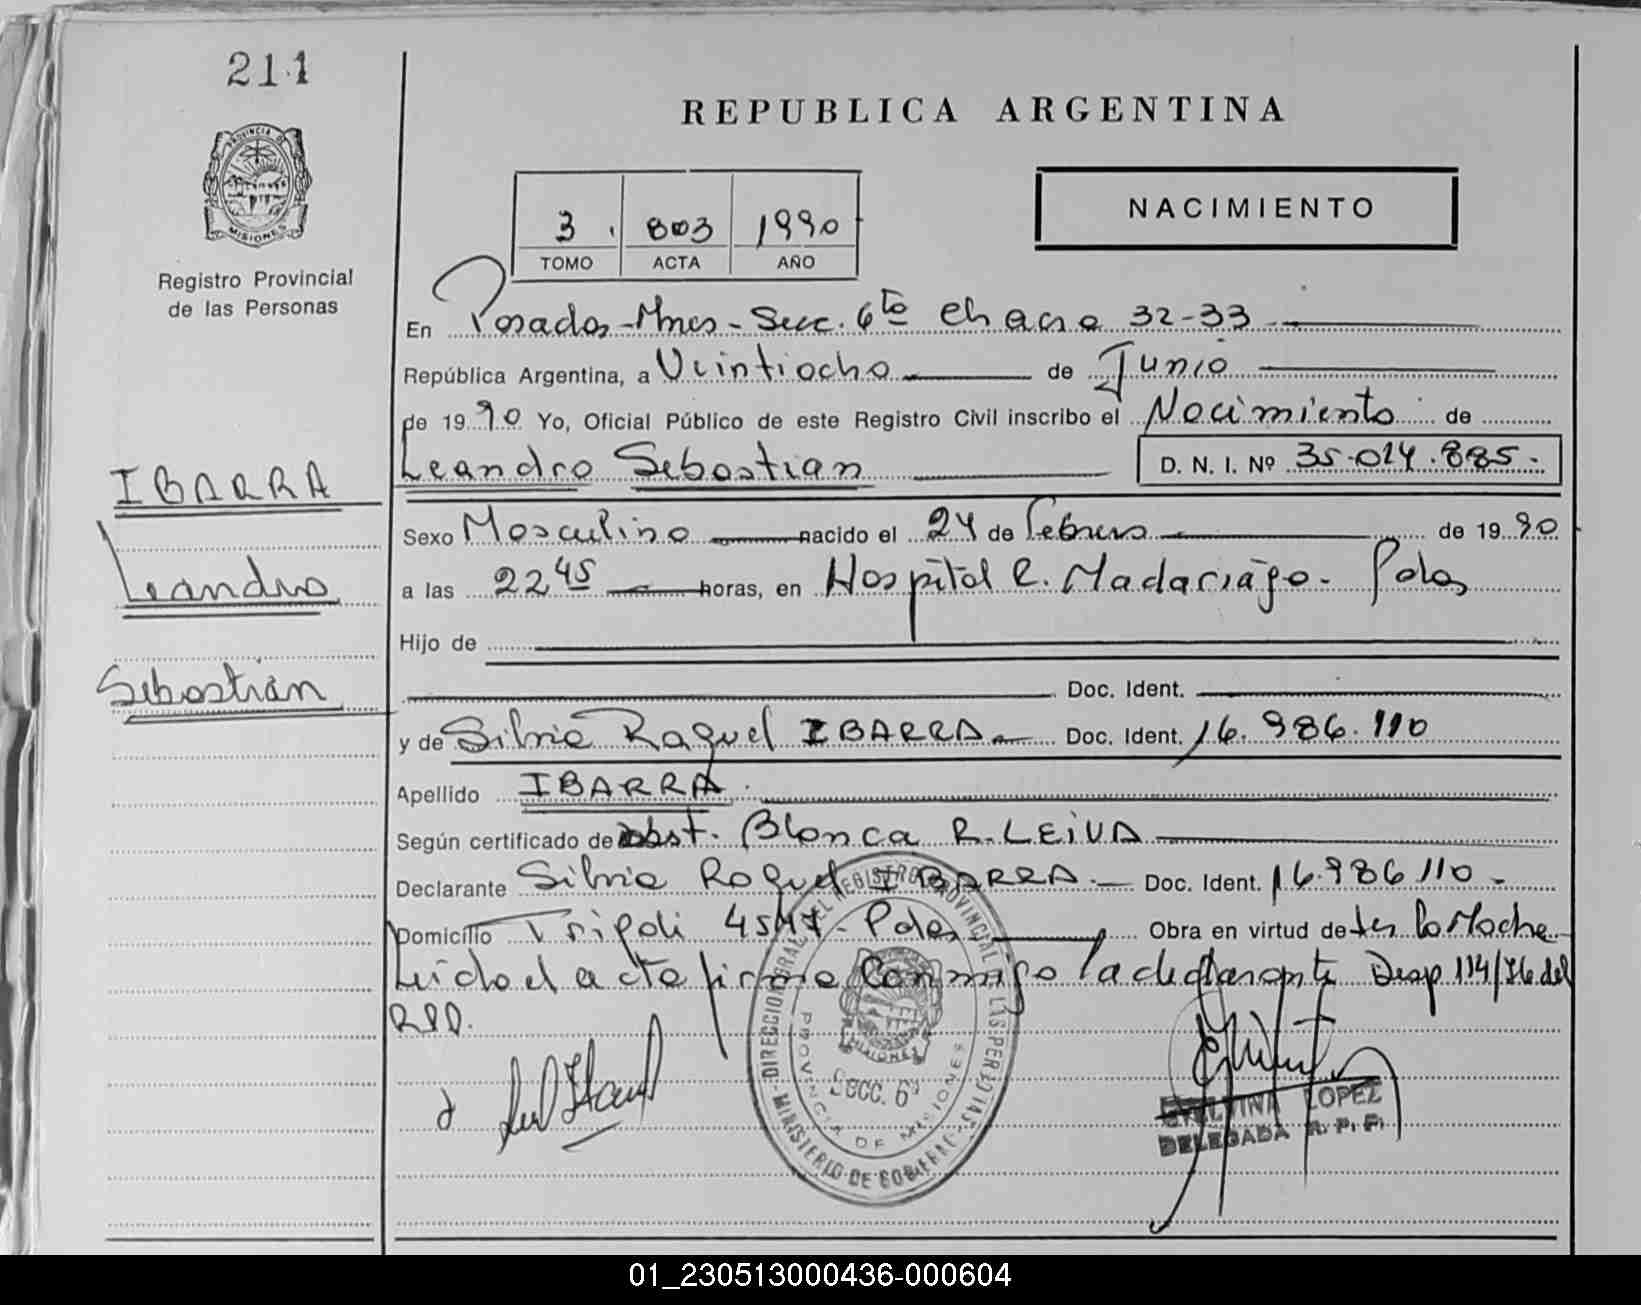 211
REPUBLICA ARGENTINA
PROVINCIA DE
MISIONES
Registro Provincial
de las Personas
3 803 1990
TOMO ACTA AÑO
NACIMIENTO
En Posadas-Mnes-Secc. 6ta Chacra 32-33
República Argentina, a Veintiocho de Junio
de 1990 Yo, Oficial Público de este Registro Civil inscribo el Nacimiento de
Leandro Sebastian D. N. I. Nº 35.014.885.
IBARRA
Leandro
Sebastián
Sexo Masculino nacido el 24 de Febrero de 1990
a las 22 45 horas, en Hospital R. Madariaga. Pdas
Hijo de
Doc. Ident.
y de Silvia Raquel IBARRA Doc. Ident. 16.986.110
Apellido IBARRA
Según certificado de Obst. Blanca R. LEIVA
Declarante Silvia Raquel IBARRA.- Doc. Ident. 16.986.110-
Domicilio Tripoli 4547- Pdas Obra en virtud de ser la Madre
Leido el acta firma conmigo la declarante Disp 114/76 del
RPP.
DIRECCION GRAL DEL REGISTRO PROVINCIAL DE LAS PERSONAS
MINISTERIO DE GOBIERNO
PROVINCIA DE MISIONES
MISIONES
Secc. 6ª
LOPEZ
DELEGADA R. P. P.
01_230513000436-000604